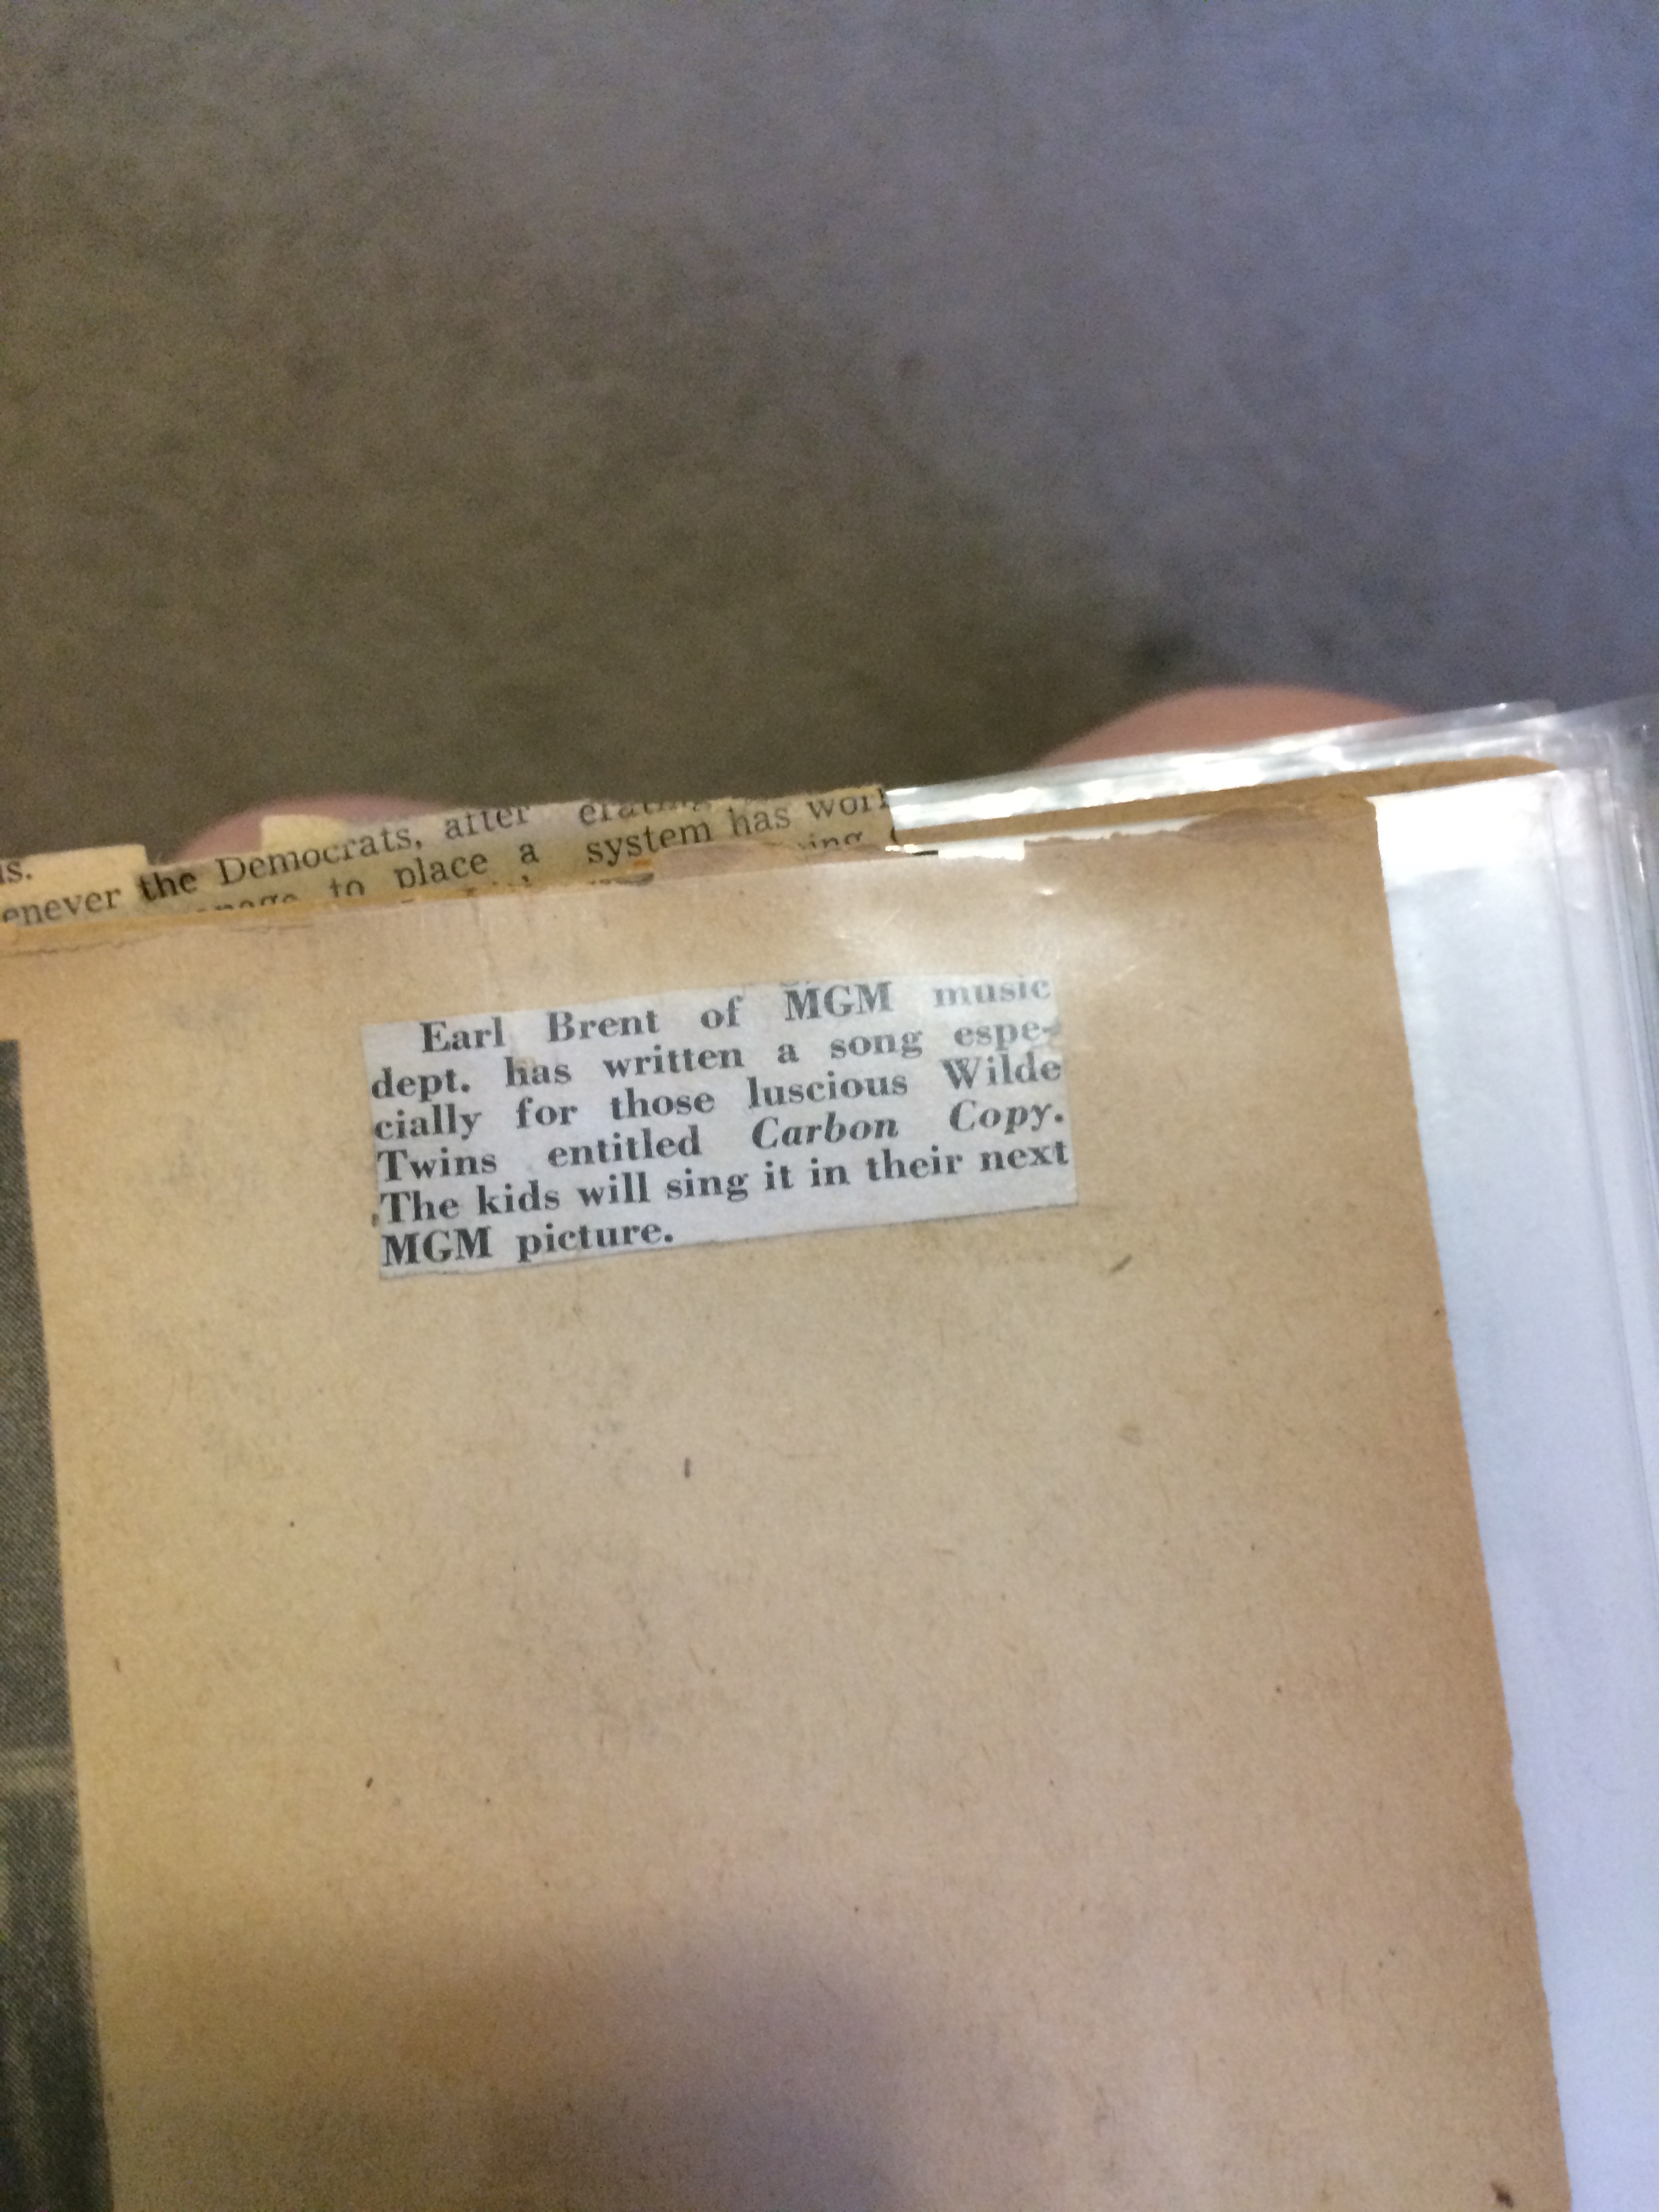 is.
enever the Democrats, after
to place a system has
Earl Brent of MGM music
dept. has written a song espe-
cially for those luscious Wilde
Twins entitled Carbon Copy.
The kids will sing it in their next
MGM picture.